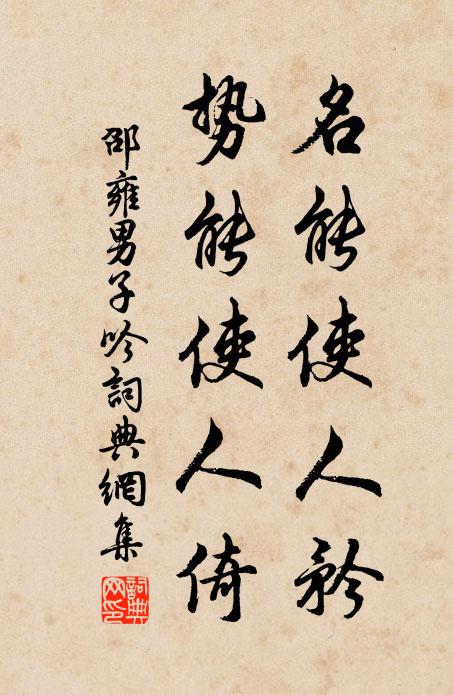 名能使人矜
势能使人倚
邵雍男子吟詞典網集
詞典网印